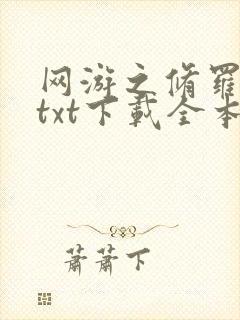 网游之修羅
txt下載全本
蕭蕭下